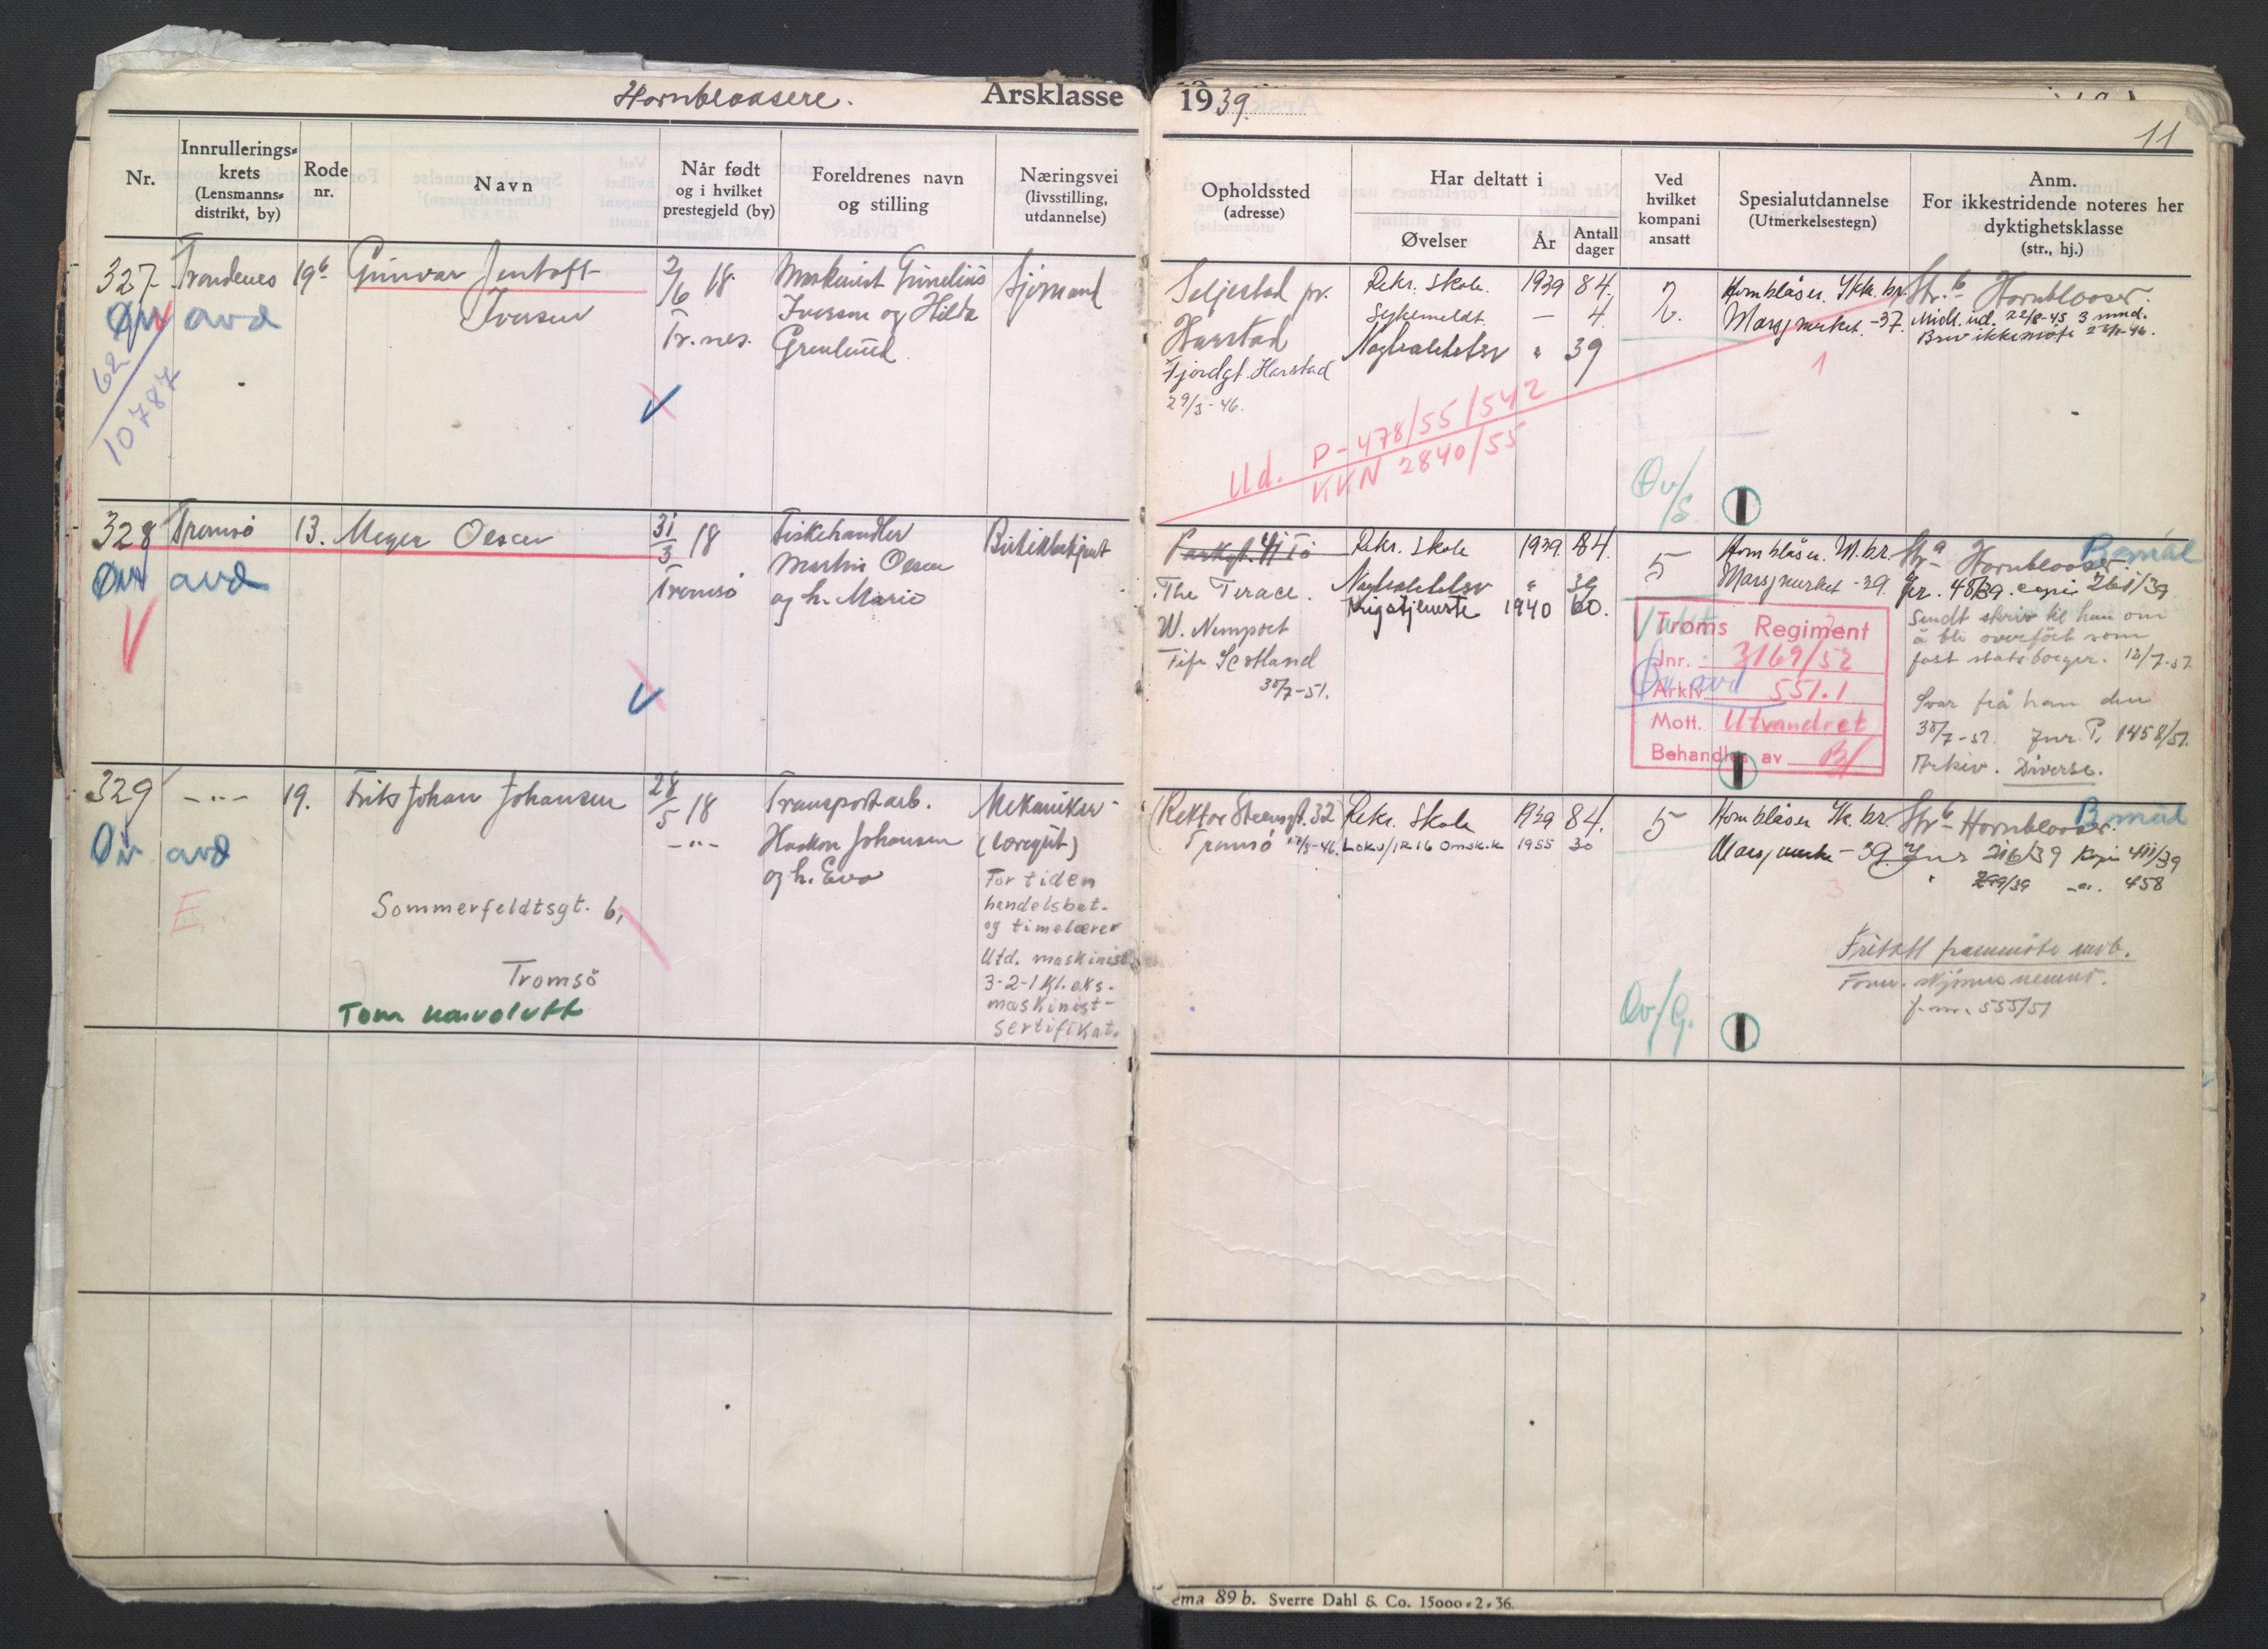 Hornblaasere. Årsklasse 1939.
11
Nr.
Innrullerings-
krets
(Lensmanns-
distrikt, by)
Rode
nr.
Navn
Når født
og i hvilket
prestegjeld (by)
Foreldrenes navn
og stilling
Næringsvei
(livsstilling,
utdannelse)
Opholdssted
(adresse)
Har deltatt i
Øvelser
År
Antall
dager
Ved
hvilket
kompani
ansatt
Spesialutdannelse
(Utmerkelsestegn)
Anm.
For ikkestridende noteres her
dyktighetsklasse
(str., hj.)
327 Trondenes 19b Gunvar Jentoft
Iversen
Øv avd
62
10787
2/6 18.
Tr.nes.
Maskinist
Iversen og Hilda
Grenlund
Sjømand
Seljestad pr.
Harstad
Fjordgt. Harstad
29/3-46.
Rekr. skole. 1939 84.
Sykemeldt. — 4.
" 39
2.
Hornblåser. Skk. br.
Marsjmerket -37.
Str. b Hornblaaser.
Midl. ud. 22/8-45 3 mnd.
Brev ikkemøtt
1
Ud. P-478/55/542
KKN 2840/55
Øv/S.
328 Tromsø 13. Meyer Olsen
Øv avd
31/3 18
Tromsø
Fiskehandler
Martin Olsen
og h. Marie
Parkgt. 4 Tø
The Terace.
W. Nemport
Fife Scotland
30/7-51.
Rekr. skole 1939 84.
" 39
Krigstjeneste 1940 60.
5
Hornblåser. M. br.
Marsjmerket -39.
Str. a Hornblaaser.
B mål
Jr. 48/39. copi 261/39
Sendt skriv til han om
å bli overført som
fast statsborger. 12/7-51.
Svar frå han den
30/7-51. Jnr. P. 1458/51.
Arkiv. Diverse.
Troms Regiment
Jnr. 3169/52
Arkiv 551.1
Mott. Utvandret
Behandles av
Øv avd
329 -"- 19. Frits Johan Johansen
Øv avd
E
Sommerfeldtsgt. 6,
Tromsö
28/5 18
-"-
Transportarb.
Haakon Johansen
og h. Eva
Mekaniker
(læregut)
For tiden
handelsbet.
og timelærer
Utd. maskinist
3-2-1 kl. eks.
maskinist-
sertifikat.
Rektor Steensgt. 32
Tromsø 17/5-46.
Rekr. skole 1939 84.
Loks/IR16 Omsk.k 1955 30
5
Hornblåser Sk. br.
Marsjmerke -39.
Str. b Hornblaaser.
B mål
Jnr 216/39 Kopi 411/39
299/39 -"- 458
3
Fritatt frammøte mob.
j.nr. 555/51
Øv/G.
ema 89 b. Sverre Dahl & Co. 15000-2-36.